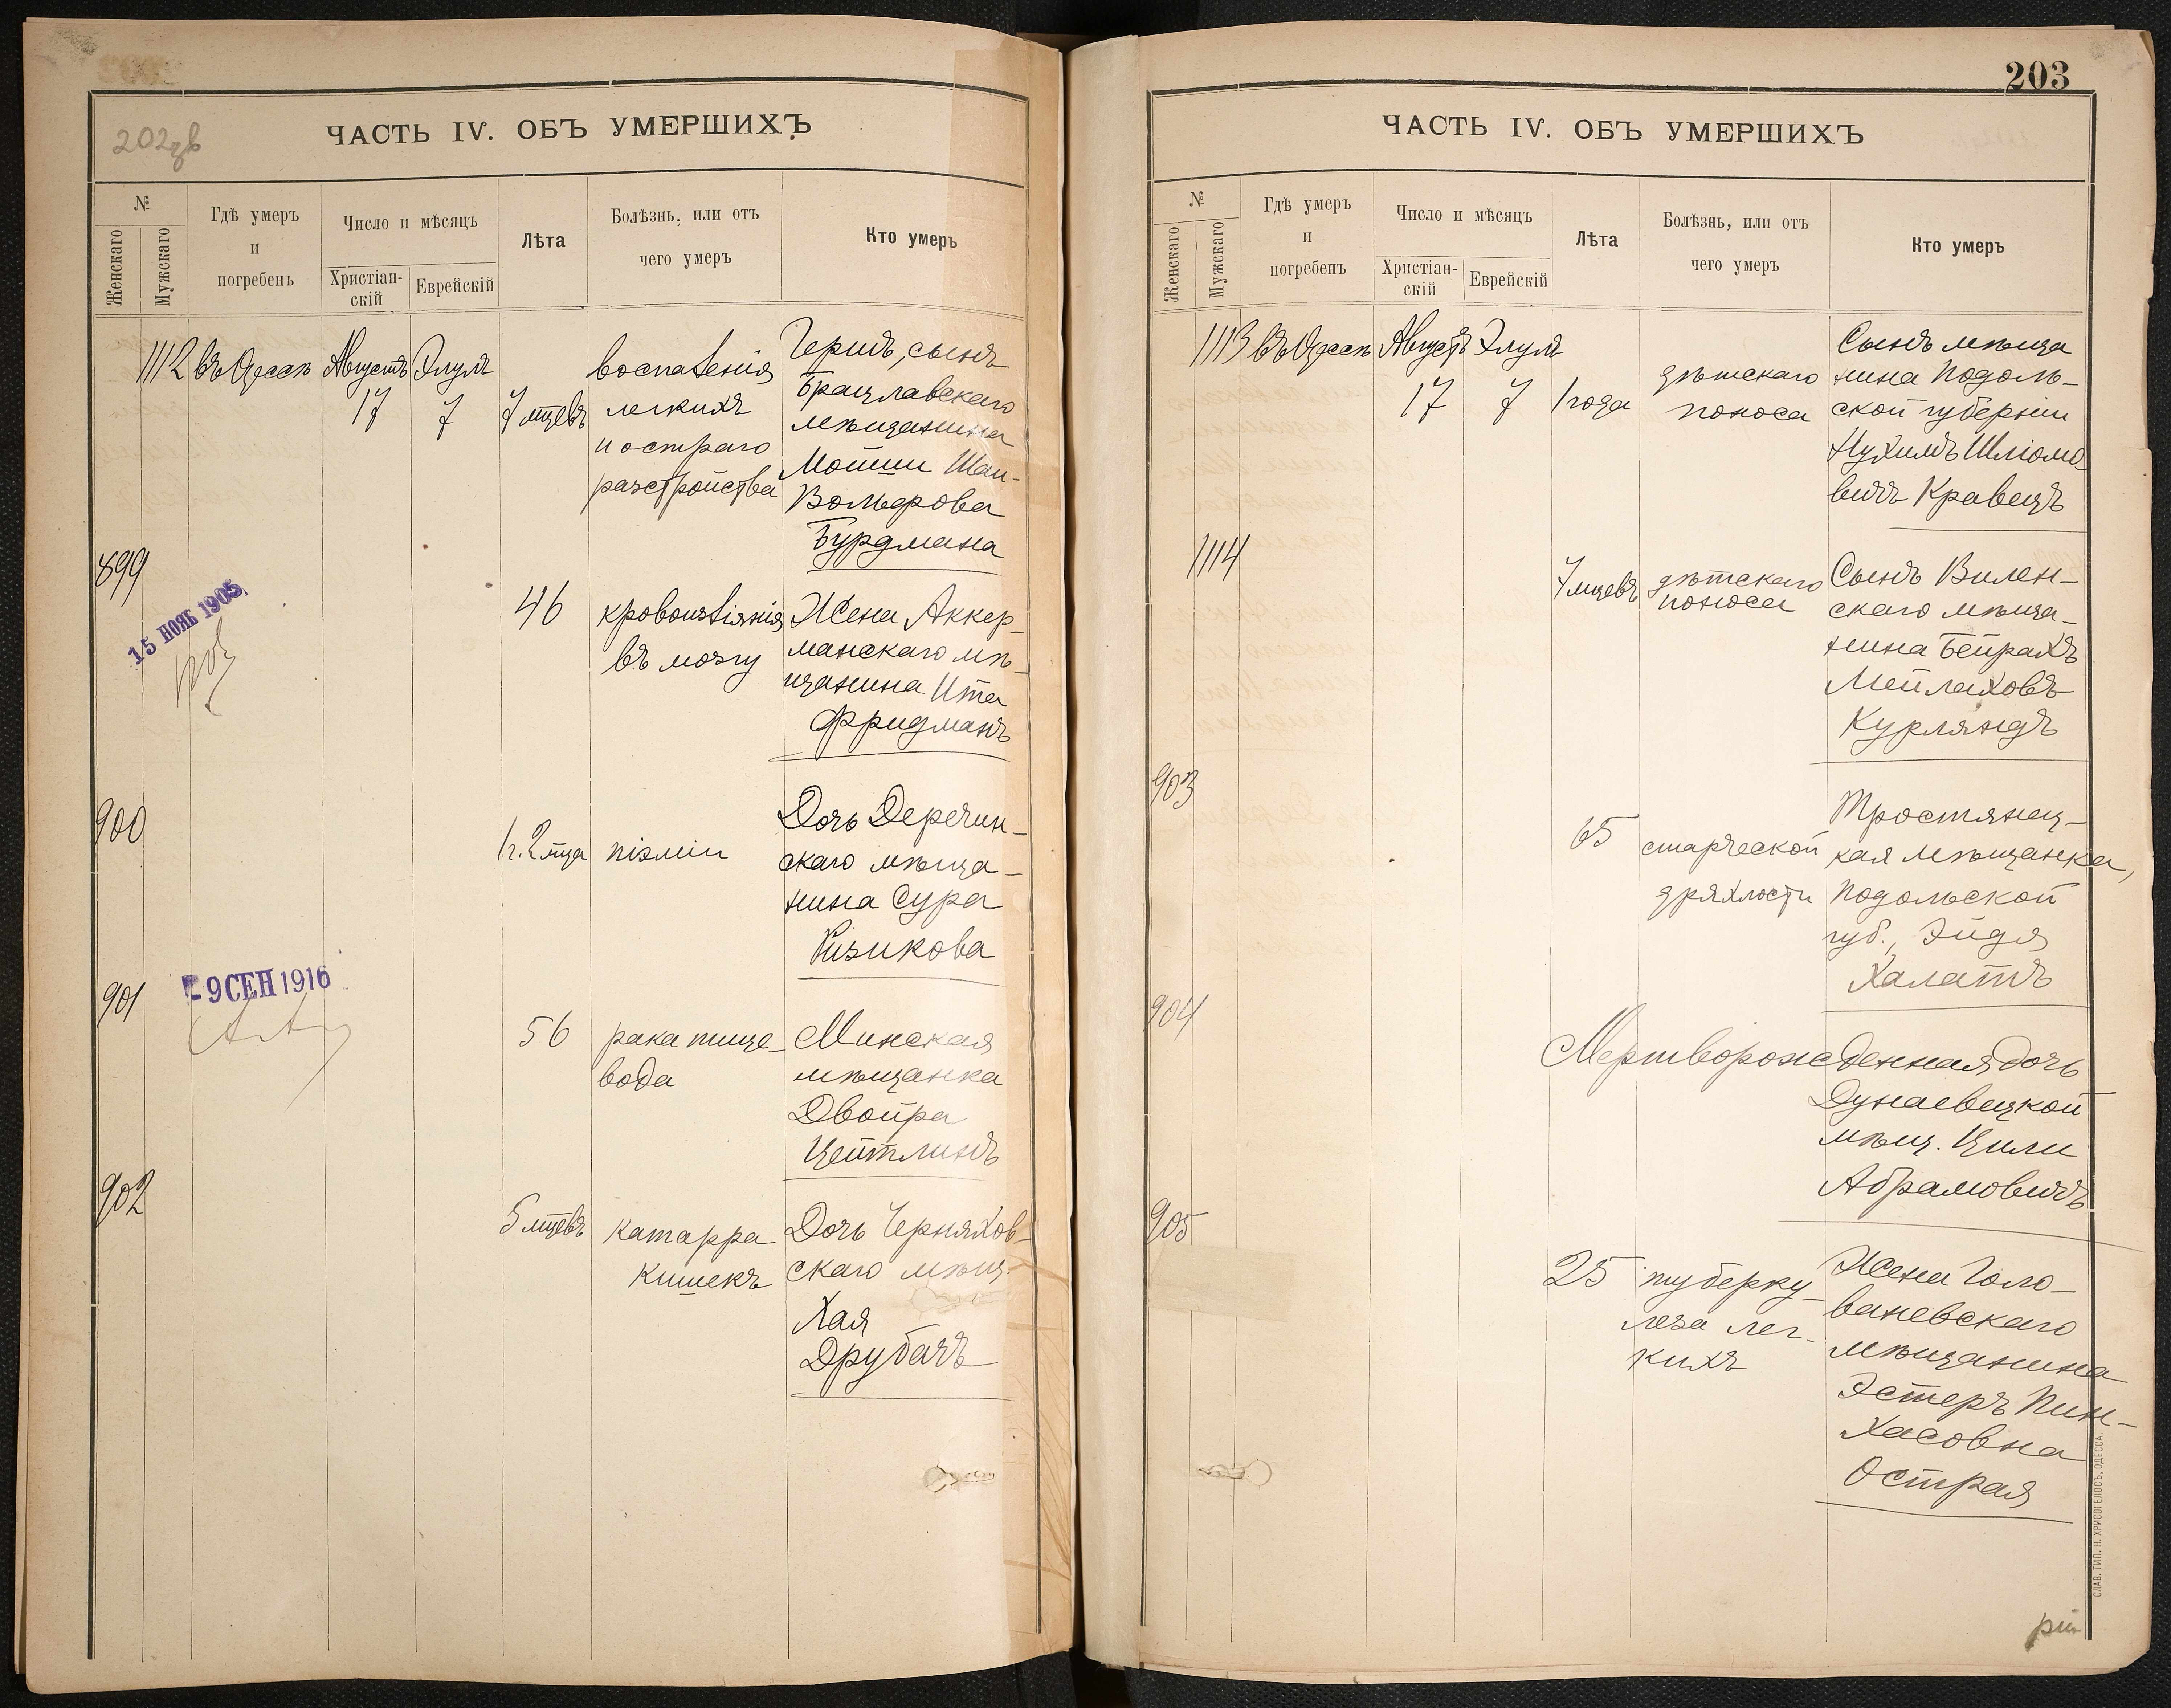 202зв
ЧАСТЬ IV. ОБЪ УМЕРШИХЪ
№
Женскаго
Мужскаго
Гдѣ умеръ
и
погребенъ
Число и мѣсяцъ
Христіан-
скій
Еврейскій
Лѣта
Болѣзнь, или отъ
чего умеръ
Кто умеръ
1112 въ Одессѣ Августъ Элулъ
17 7 7 мцевъ
воспаленія
легкихъ
и остраго
разстройства
Гершъ, сынъ
Брацлавскаго
мѣщанина
Мошши Шая-
Вольфова
Бурдмана
899
15 НОЯБ 1905
46
кровоизліянія
въ мозгу
Жена Аккер-
манскаго мѣ-
щанина Ита
Фридманъ
900
1 г. 2 мца
піэміи
Дочь Деречин-
скаго мѣща-
нина Сура
Ризикова
901
- 9 СЕН 1916
56
рака пище-
вода
Минская
мѣщанка
Двойра
Цейтлинъ
902
5 мцевъ
катарра
кишекъ
Дочь Черняхов-
скаго мѣщ.
Хая
Друбачъ
203
ЧАСТЬ IV. ОБЪ УМЕРШИХЪ
№
Женскаго
Мужскаго
Гдѣ умеръ
и
погребенъ
Число и мѣсяцъ
Христіан-
скій
Еврейскій
Лѣта
Болѣзнь, или отъ
чего умеръ
Кто умеръ
1113 въ Одессѣ Августъ Элулъ
17 7 1 года
дѣтскаго
поноса
Сынъ мѣща
нина Подоль-
ской губерніи
Нухимъ Шліомо
вичъ Кравецъ
1114
7 мцевъ
дѣтскаго
поноса
Сынъ Вилен-
скаго мѣща-
нина Бейрахъ
Мейлаховъ
Курляндъ
903
65
старческой
дряхлости
Тростянец-
кая мѣщанка,
Подольской
губ., Эйдя
Халатъ
904
Мертворожденная дочь
Дунаевецкой
мѣщ. Цили
Абрамовичъ
905
25
туберку-
леза лег-
кихъ
Жена Голо-
ваневскаго
мѣщанина
Эстеръ Пин-
хасовна
Острая
СЛАВ. ТИП. Н. ХРИСОГЕЛОСЪ, ОДЕССА.